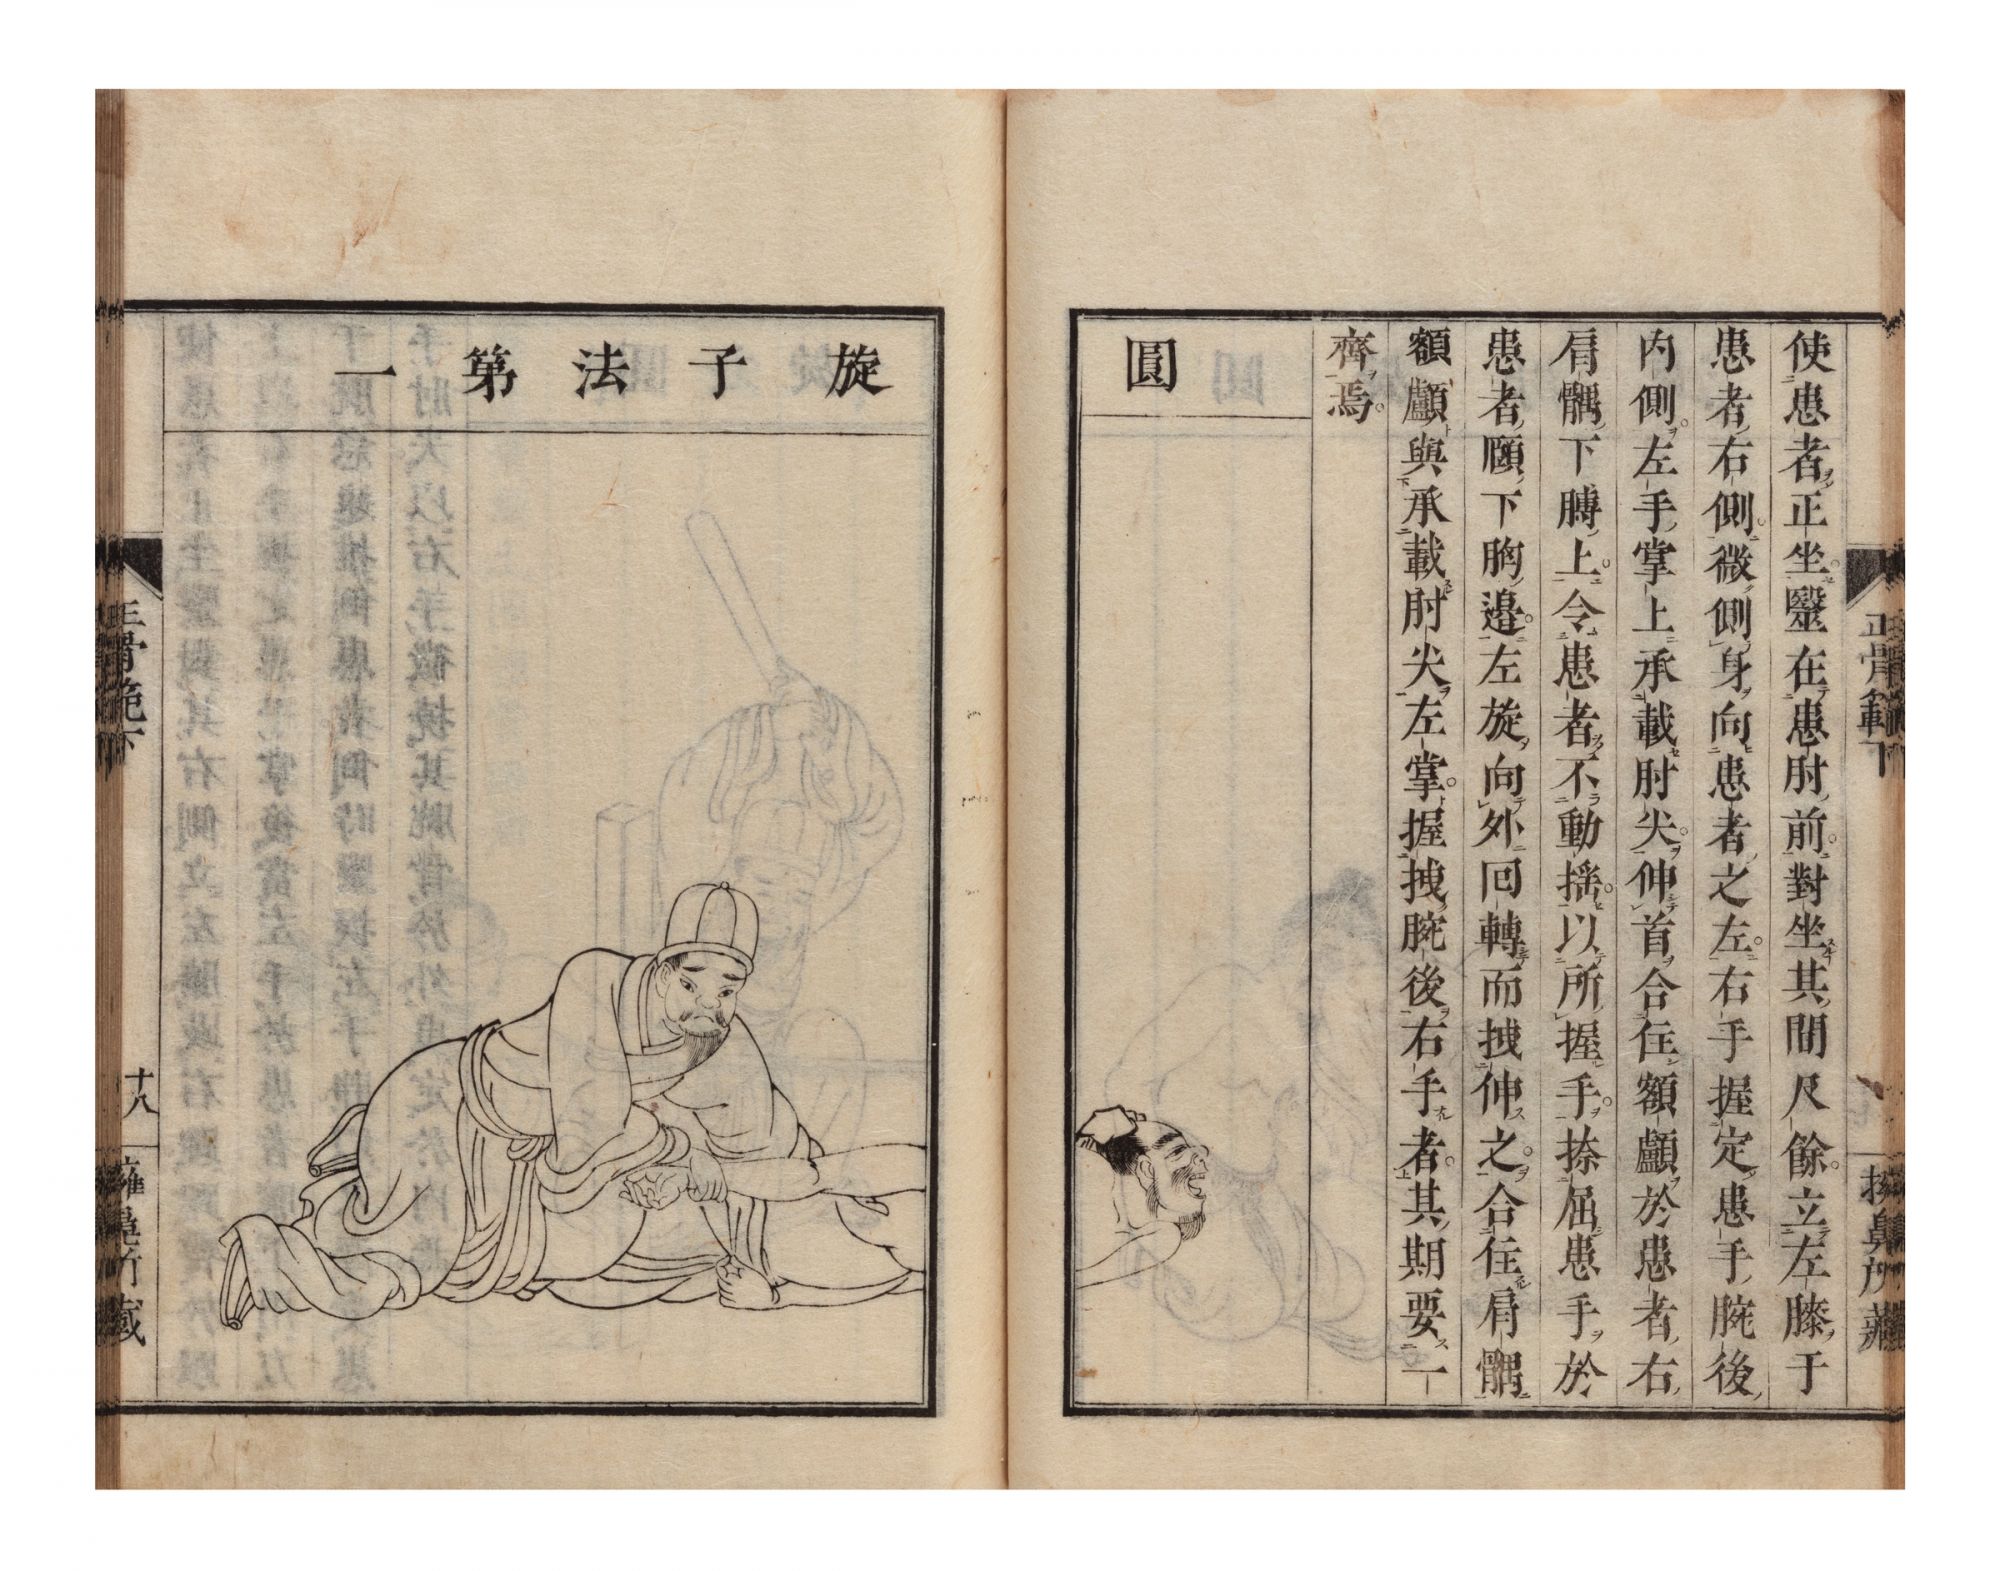 正骨範下
使患者正坐醫在患肘前對坐其間尺餘立左膝于
患者右側微側身向患者之左右手握定患手腕後
内側左手掌上承載肘尖伸首合住額顱於患者右
肩髃下膊上令患者不動搖以所握手捺屈患手於
患者頤下胸邊左旋向外回轉而拽伸之合住肩髃
額顱與承載肘尖左掌握拽腕後右手者其期要一
齊焉
圓
旋子法第一
正骨範下
十八